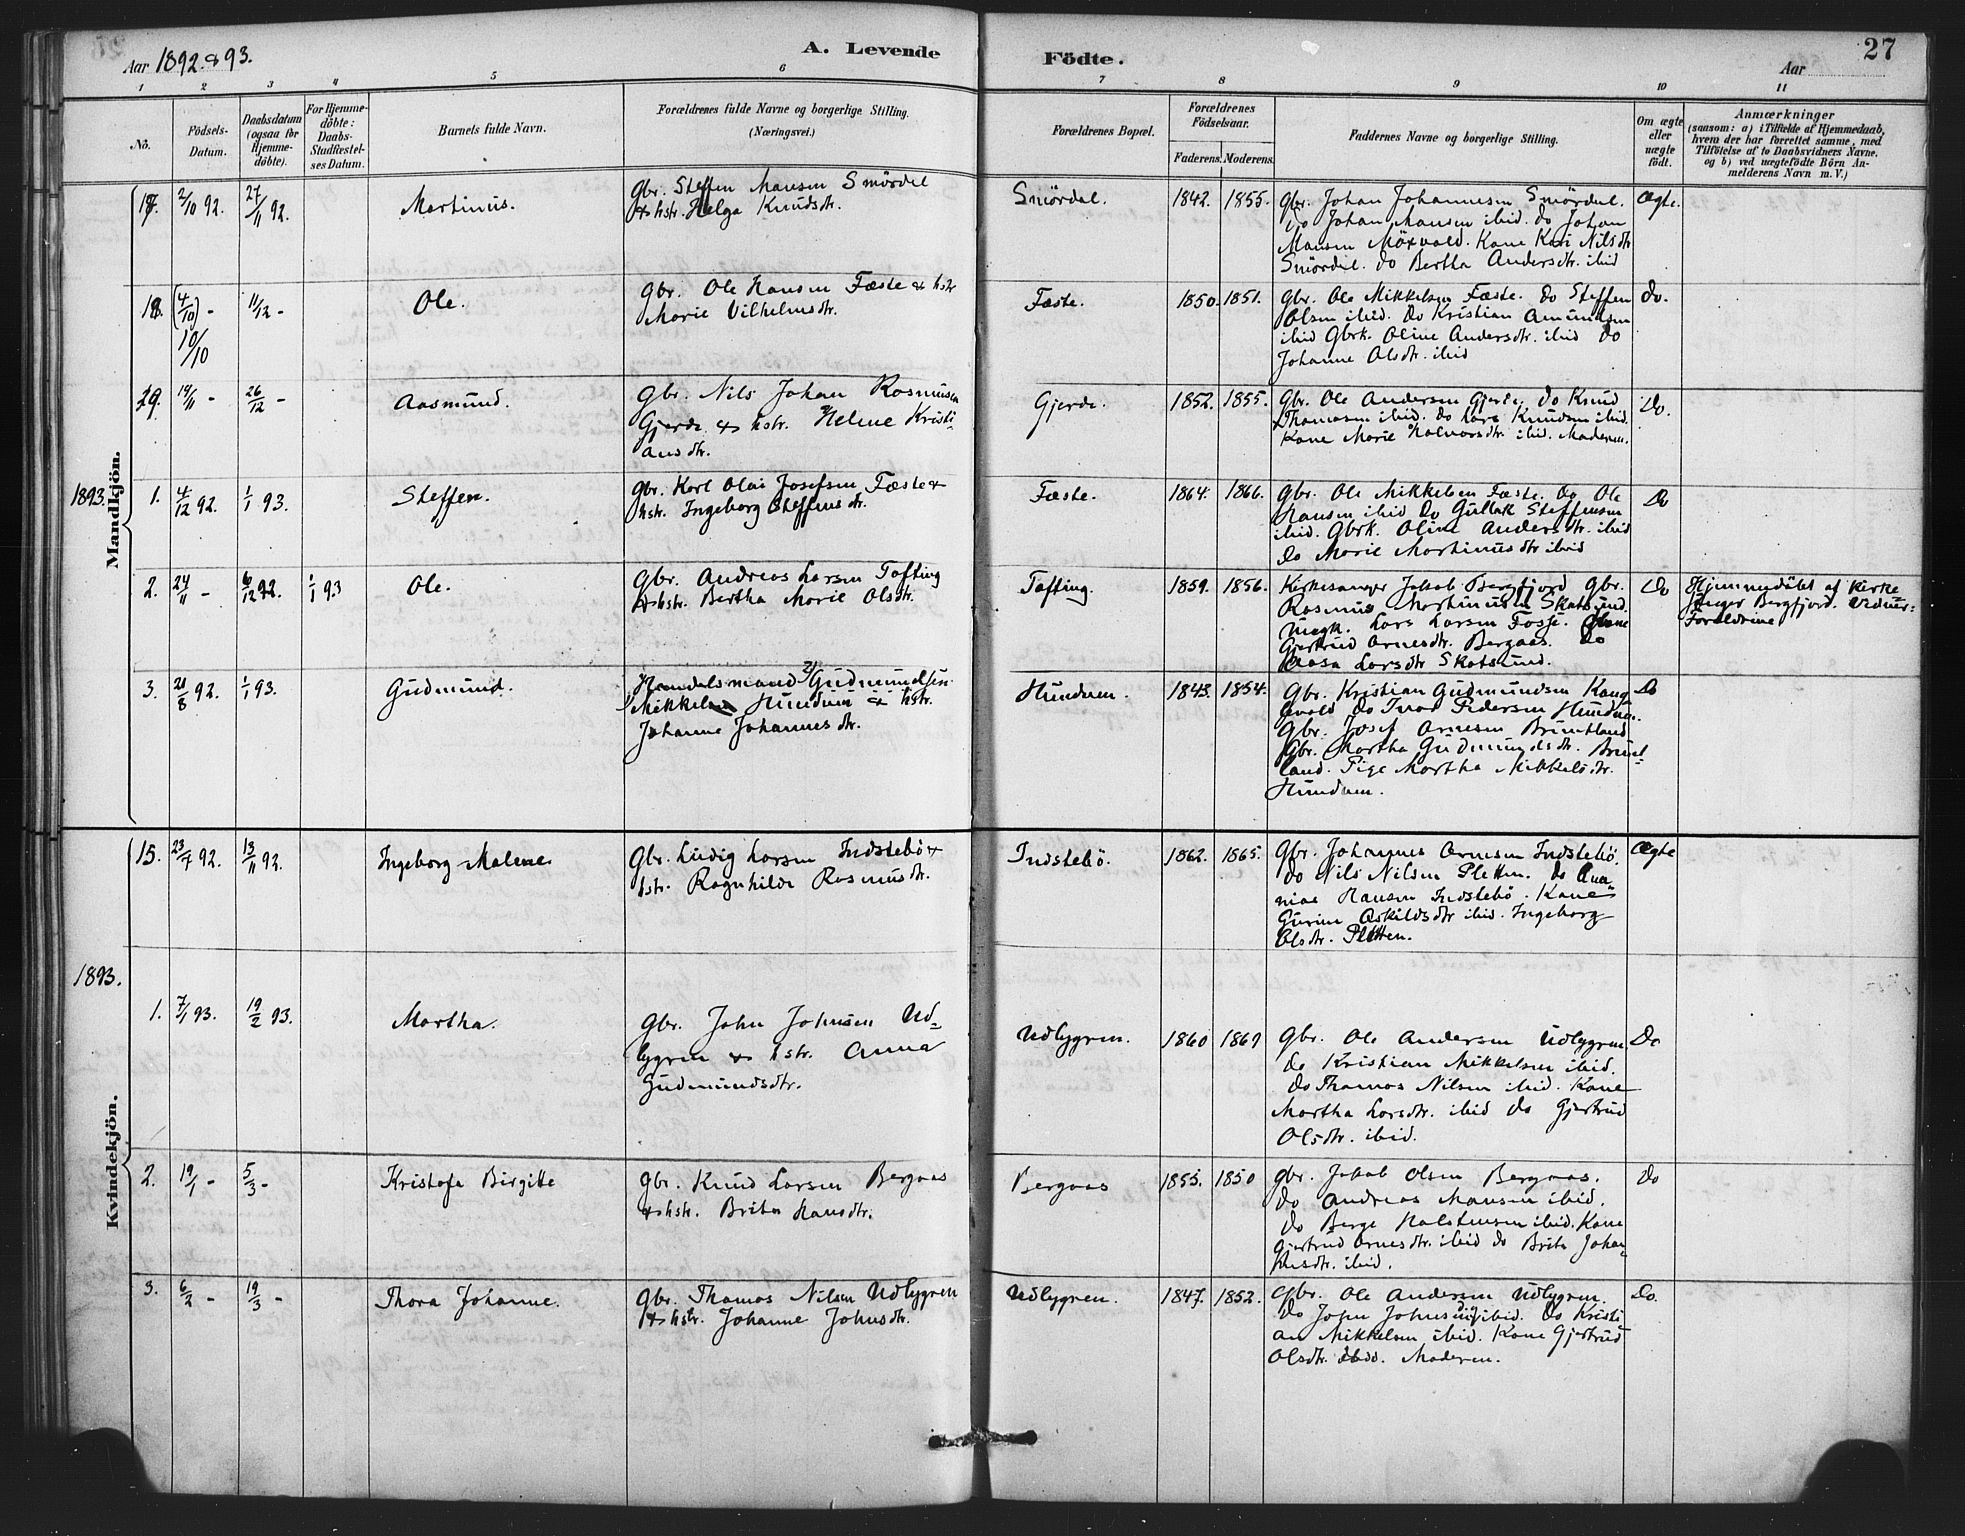 Aar 1892 & 93.
A. Levende
Födte.
27
Aar
1 2 3 4 5 6 7 8 9 10 11
No.
Födsels-
Datum.
Daabsdatum
(ogsaa för
Hjemme-
döbte).
For Hjemme-
döbte:
Daabs-
Stadfæstel-
ses Datum.
Barnets fulde Navn.
Forældrenes fulde Navne og borgerlige Stilling.
(Næringsvei.)
Forældrenes Bopæl.
Forældrenes
Födselsaar.
Faderens. Moderens.
Faddernes Navne og borgerlige Stilling.
Om ægte
eller
uægte
födt.
Anmærkninger
(saasom: a) i Tilfælde af Hjemmedaab,
hvem der har forrettet samme, med
Tilföielse af to Daabsvidners Navne,
og b) ved uægtefödte Börn An-
melderens Navn m. V.)
Mandkjön.
17. 2/10 92. 27/11 92.
Martinus.
Gbr. Steffen Mansen Smördal
& hstr. Helga Knudsdtr.
Smördal.
1842. 1855.
Gbr. Johan Johannesen Smördal.
do Johan Mansen ibid. do Johan
Mansen Möxvold. Kone Kari Nilsdtr
Smördal. do Bertha Andersdtr. ibid
Ægte.
18. (4/10) - 11/12 -
10/10
Ole.
Gbr. Ole Hansen Fæste & hstr
Marie Vilhelmsdtr.
Fæste.
1850. 1851.
Gbr. Ole Mikkelsen Fæste. do Steffen
Olsen ibid. do Kristian Amundsen
ibid Gbrk. Oline Andersdtr. ibid do
Johanne Olsdtr. ibid
do.
19. 14/11 - 26/12 -
Aasmund.
Gbr. Nils Johan Rasmusen
Gjerde & hstr. Helene Kristi-
ansdtr.
Gjerde.
1852. 1855.
Gbr. Ole Andersen Gjerde, do Knud
Thomasen ibid. do Lars Knudsen ibid.
Kone Marie Halvorsdtr. ibid. Moderen.
Do.
1893.
1. 4/12 92. 1/1 93.
Steffen.
Gbr. Karl Olai Josefsen Fæste &
hstr. Ingeborg Steffensdtr.
Fæste.
1864. 1866.
Gbr. Ole Mikkelsen Fæste. do Ole
Hansen ibid do Gullak Steffensen
ibid. Gbrk. Oline Andersdtr. ibid
do Marie Martinusdtr ibid
Do
2. 24/11 - 6/12 92. 1/1 93
Ole.
Gbr. Andreas Larsen Tofting
& hstr. Bertha Marie Olsdtr.
Tofting.
1859. 1856.
Kirkesanger Jakob Bergfjord Gbr.
Rasmus Martinusen Skatsund.
Ungk. Lars Larsen Fosse. Kone
Gjertrud Arnesdtr. Bergaas. do
Aasa Larsdtr Skatsund.
Do
Hjemmedöbt af Kirke-
sanger Bergfjord. Vidner:
Forældrene
3. 21/8 92. 1/1 93.
Gudmund.
Handelsmand Gudmundsen
Mikkel Hundven & hstr.
Johanne Johannesdtr.
Hundven.
1843. 1854.
Gbr. Kristian Gudmundsen Kaug-
evold do Ivar Pedersen Hundven.
Gbr. Josef Arnesen Bruntland
Gbr. Martha Gudmundsdtr. Brunt-
land. Pige Martha Mikkelsdtr.
Hundven.
Do
Kvindekjön.
15. 23/7 92. 13/11 92.
Ingeborg Malene
Gbr. Ludvig Larsen Indstebö &
hstr. Ragnhilde Rasmusdtr.
Indstebö.
1862. 1865.
Gbr. Johannes Arnesen Indstebö.
do Nils Nilsen Pletten. do Ana-
nias Hansen Indstebö. Kone
Gurine Askildsdtr ibid. Ingeborg
Olsdtr. Pletten.
Ægte
1893.
1. 7/1 93. 19/2 93.
Martha.
Gbr. John Johnsen Ud-
lygren & hstr. Anna
Gudmundsdtr.
Udlygren.
1860 1869
Gbr. Ole Andersen Udlygren
do Kristian Mikkelsen ibid.
do Thomas Nilsen ibid. Kone
Martha Larsdtr. ibid do Gjertrud
Olsdtr. ibid.
Do
2. 19/1 - 5/3 -
Kristofa Birgitte
Gbr. Knud Larsen Bergaas
& hstr. Brita Hansdtr.
Bergaas
1855. 1850
Gbr. Jakob Olsen Bergaas.
do Andreas Mansen ibid.
do Berge Halstensen ibid. Kone
Gjertrud Arnesdtr. ibid do Brita Johan-
nesdtr. ibid.
Do
3. 6/2 - 19/3 -
Thora Johanne.
Gbr. Thomas Nilsen Udlygren
& hstr. Johanne Johnsdtr.
Udlygren.
1847. 1852.
Gbr. Ole Andersen Udlygren.
do John Johnsen ibid. do Kristi-
an Mikkelsen ibid. Kone Gjertrud
Olsdtr. ibid. Moderen.
Do.